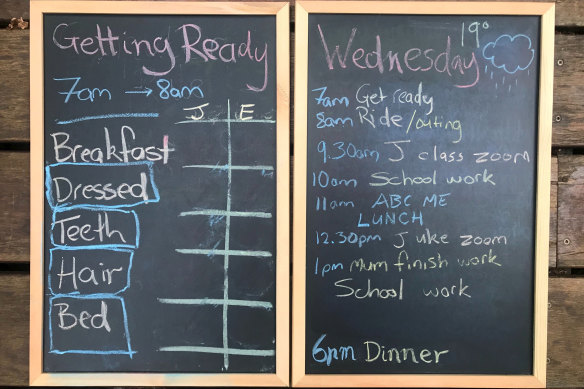 Getting Ready
7am → 8am
J E
Breakfast
Dressed
Teeth
Hair
Bed
Wednesday 19°
7am Get ready
8am Ride/outing
9.30am J class zoom
10am School work
11am ABC ME
LUNCH
12.30pm J uke zoom
1pm Mum finish work
School work
6pm Dinner